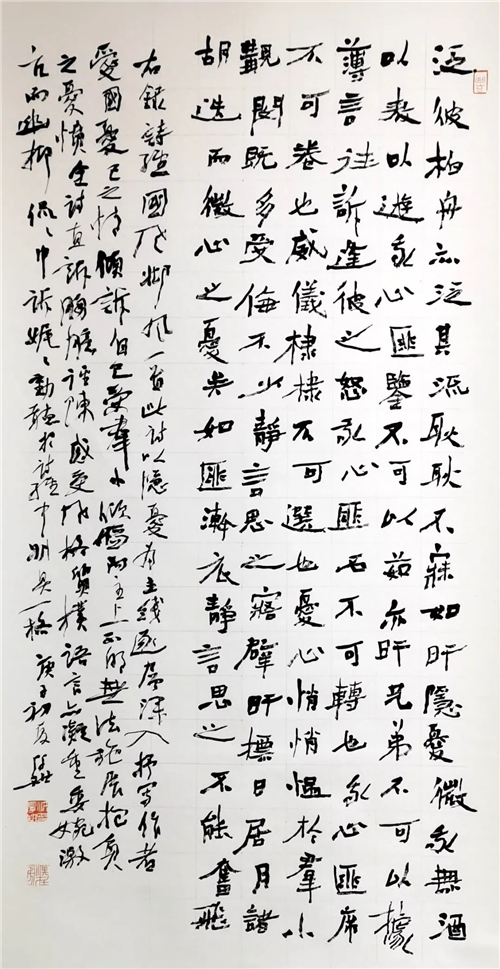 泛彼柏舟亦泛其流耿耿不寐如有隱憂微我無酒
以敖以遊我心匪鑒不可以茹亦有兄弟不可以據
薄言往訴逢彼之怒我心匪石不可轉也我心匪席
不可卷也威儀棣棣不可選也憂心悄悄慍於羣小
覯閔既多受侮不少靜言思之寤擘有摽日居月諸
胡迭而微心之憂矣如匪澣衣靜言思之不能奮飛
右錄詩經國風邶風一首此詩以隱憂為主綫逐層深入抒寫作者
愛國憂己之情傾訴自己受羣小傾陷而主上不明無法施展抱負
之憂憤全詩直訴胸臆陳感受風格質樸語言亦凝重委婉激
亢而幽抑侃侃申訴娓娓動聽於詩經中別具一格 庚子初夏